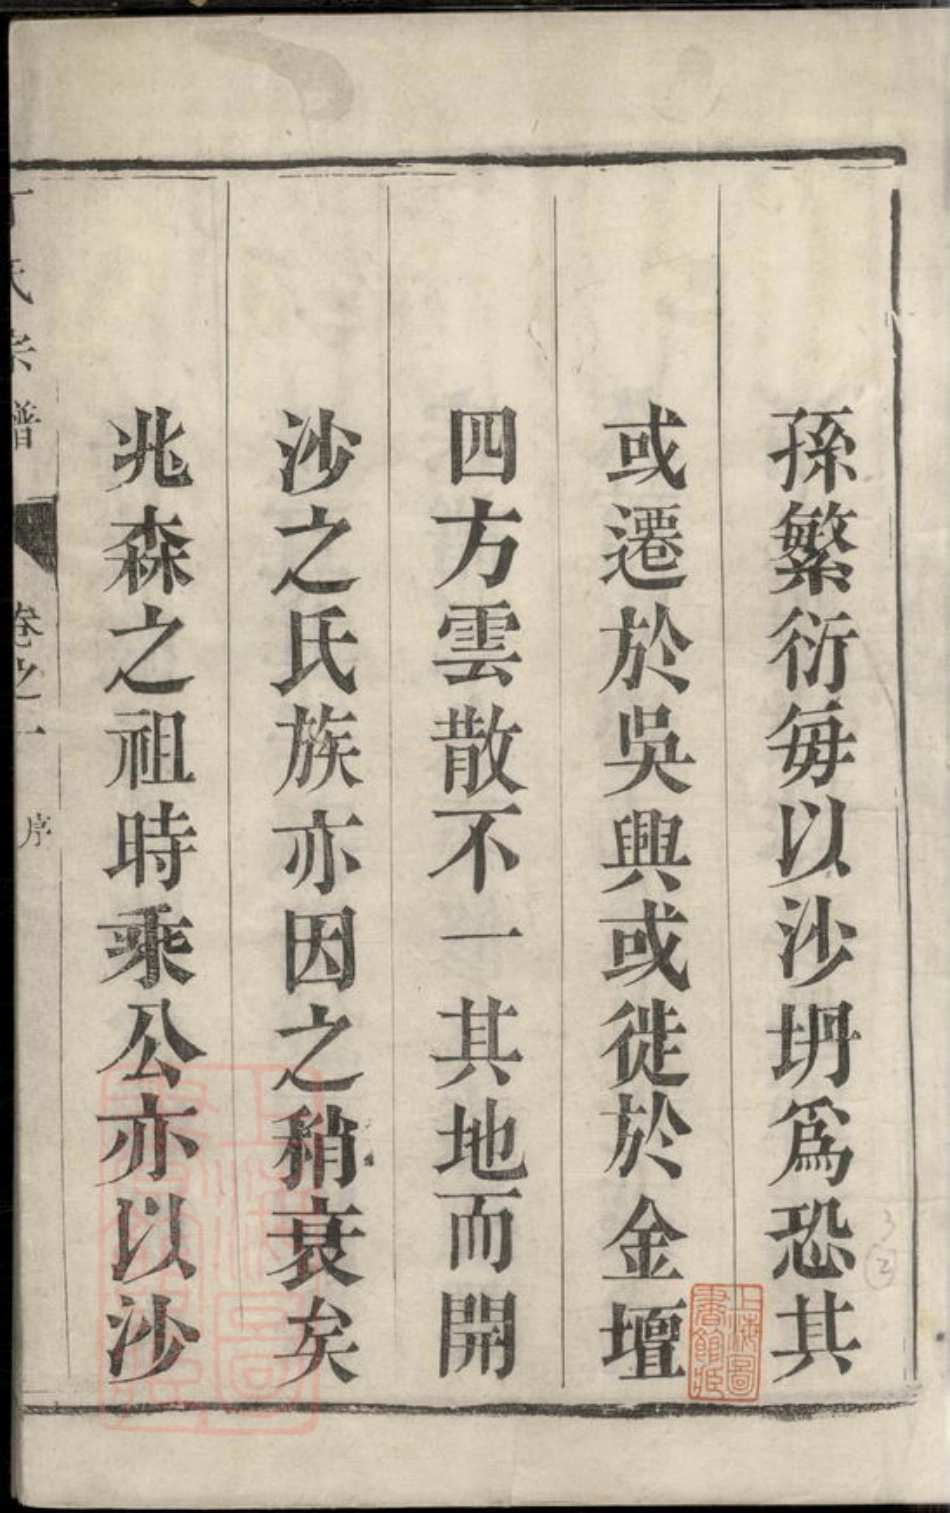 孫繁衍每以沙坍爲恐其
或遷於吳興或徙於金壇
四方雲散不一其地而開
沙之氏族亦因之稍衰矣
兆森之祖時乘公亦以沙
氏宗譜 卷之一 序
上海圖書館藏